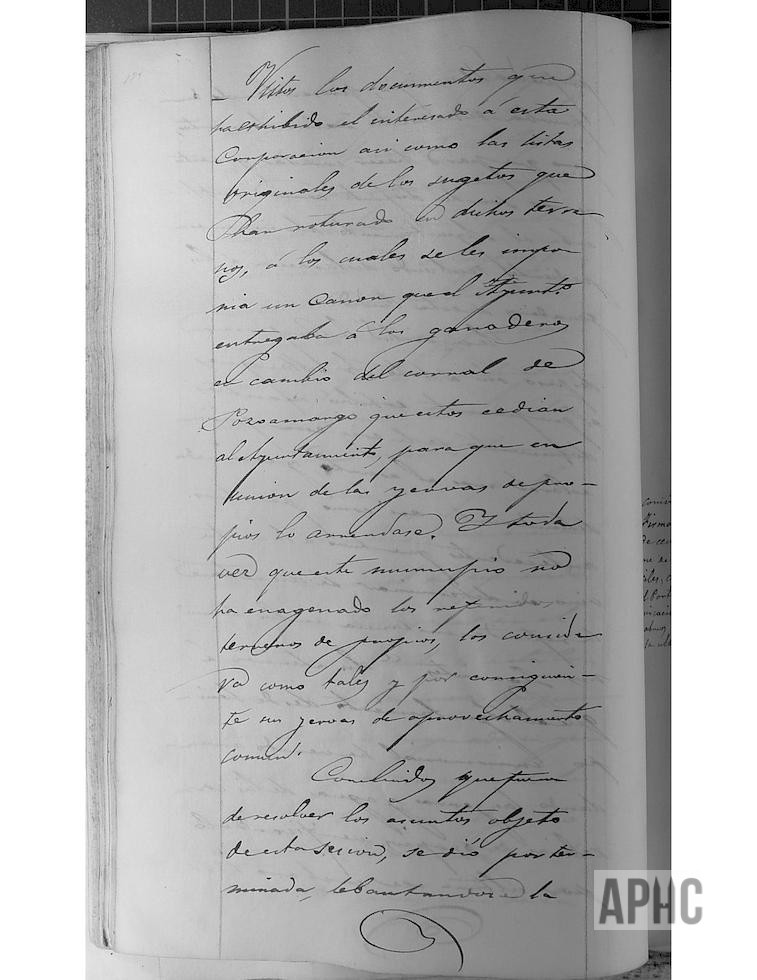 Vistos los documentos que
ha exhibido el interesado á esta
Corporacion asi como las listas
originales de los sugetos que
han roturado en dichos terre
nos, á los cuales se les impo
nia un Canon que el Ayunt.º
entregaba á los ganaderos
en cambio del corral de
Pozoamargo que estos cedian
al Ayuntamiento, para que en
union de las yervas de pro-
pios lo arrendase. Y toda
vez que este municipio no
ha enagenado los referidos
terrenos de propios, los conside
ra como tales y por consiguien-
te sus yervas de aprovechamiento
comun.
Concluidos que fueron
de resolver los asuntos objeto
de esta sesion, se dió por ter-
minada, lebantandose la
APHC